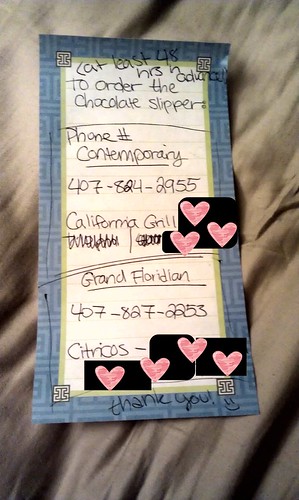 (at least 48
hrs in advance)
To order the
Chocolate slipper.
Phone #
Contemporary
407-824-2955
California Grill
Grand Floridian
407-827-2253
Citricos -
thank you!